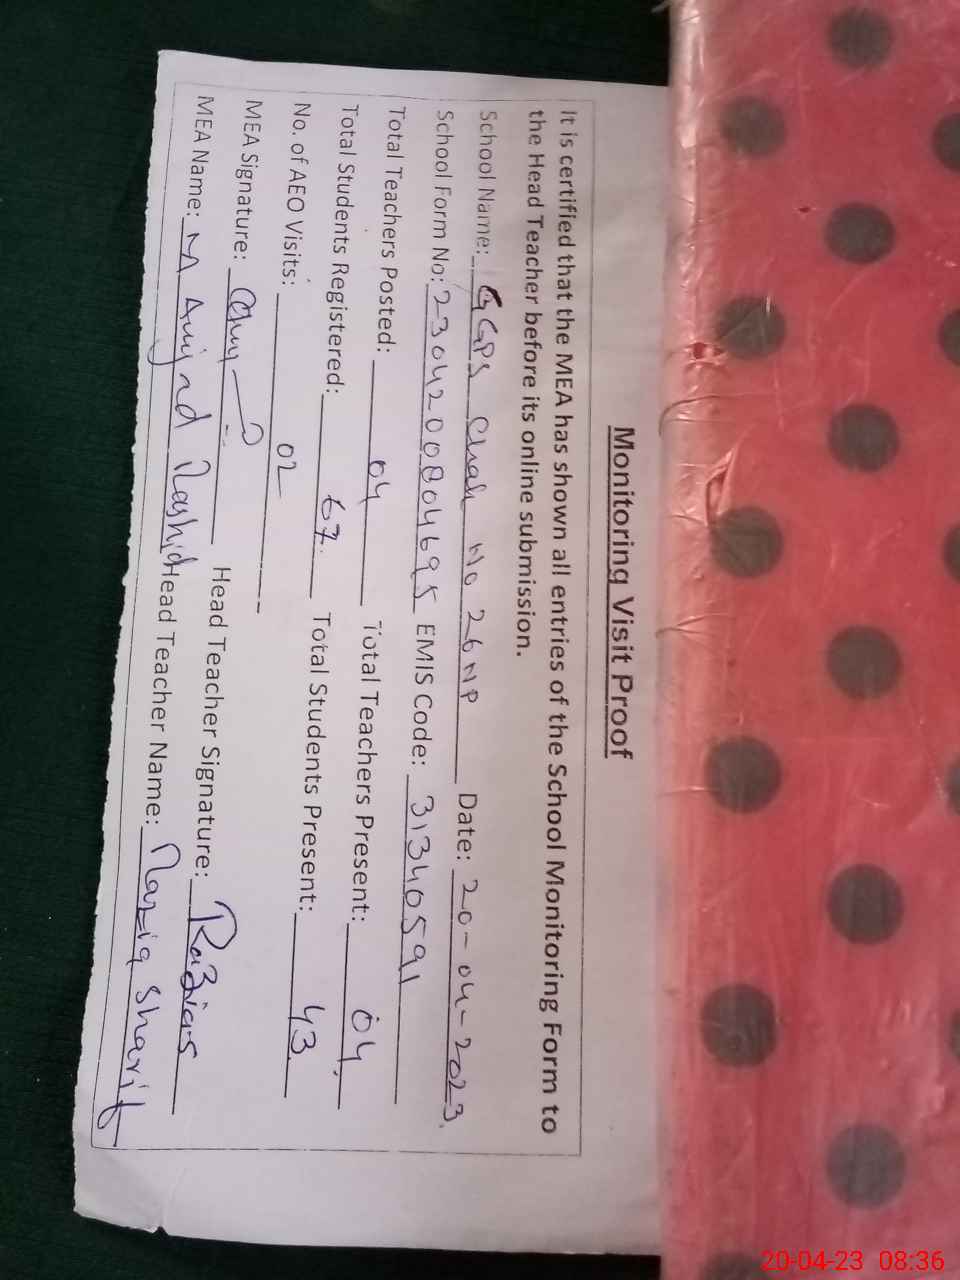 Monitoring Visit Proof
It is certified that the MEA has shown all entries of the School Monitoring Form to
the Head Teacher before its online submission.
School Name: GGPS Chak No 26 NP Date: 20-04-2023
School Form No: 230420080 4695 EMIS Code: 31340591
Total Teachers Posted: 04 Total Teachers Present: 04
Total Students Registered: 67 Total Students Present: 43
No. of AEO Visits: 02
MEA Signature: Head Teacher Signature:
MEA Name: M Amjad Rashid Head Teacher Name: Nazia Sharif
20-04-23 08:36